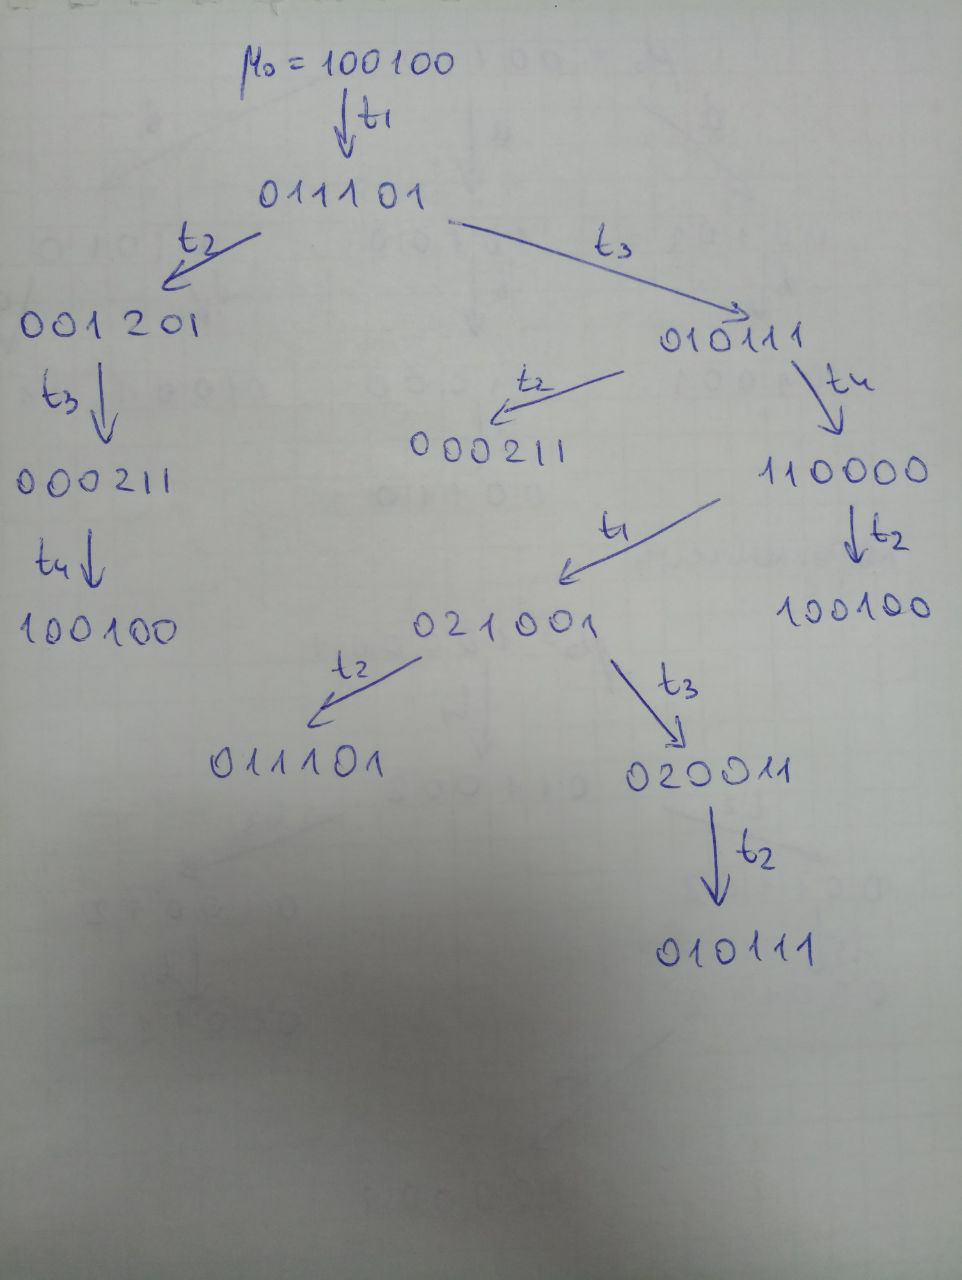 μ₀ = 100100
t₁
011101
t₂ t₃
001201 010111
t₃ t₂ t₄
000211 000211 110000
t₄ t₁ t₂
100100 021001 100100
t₂ t₃
011101 020011
t₂
010111